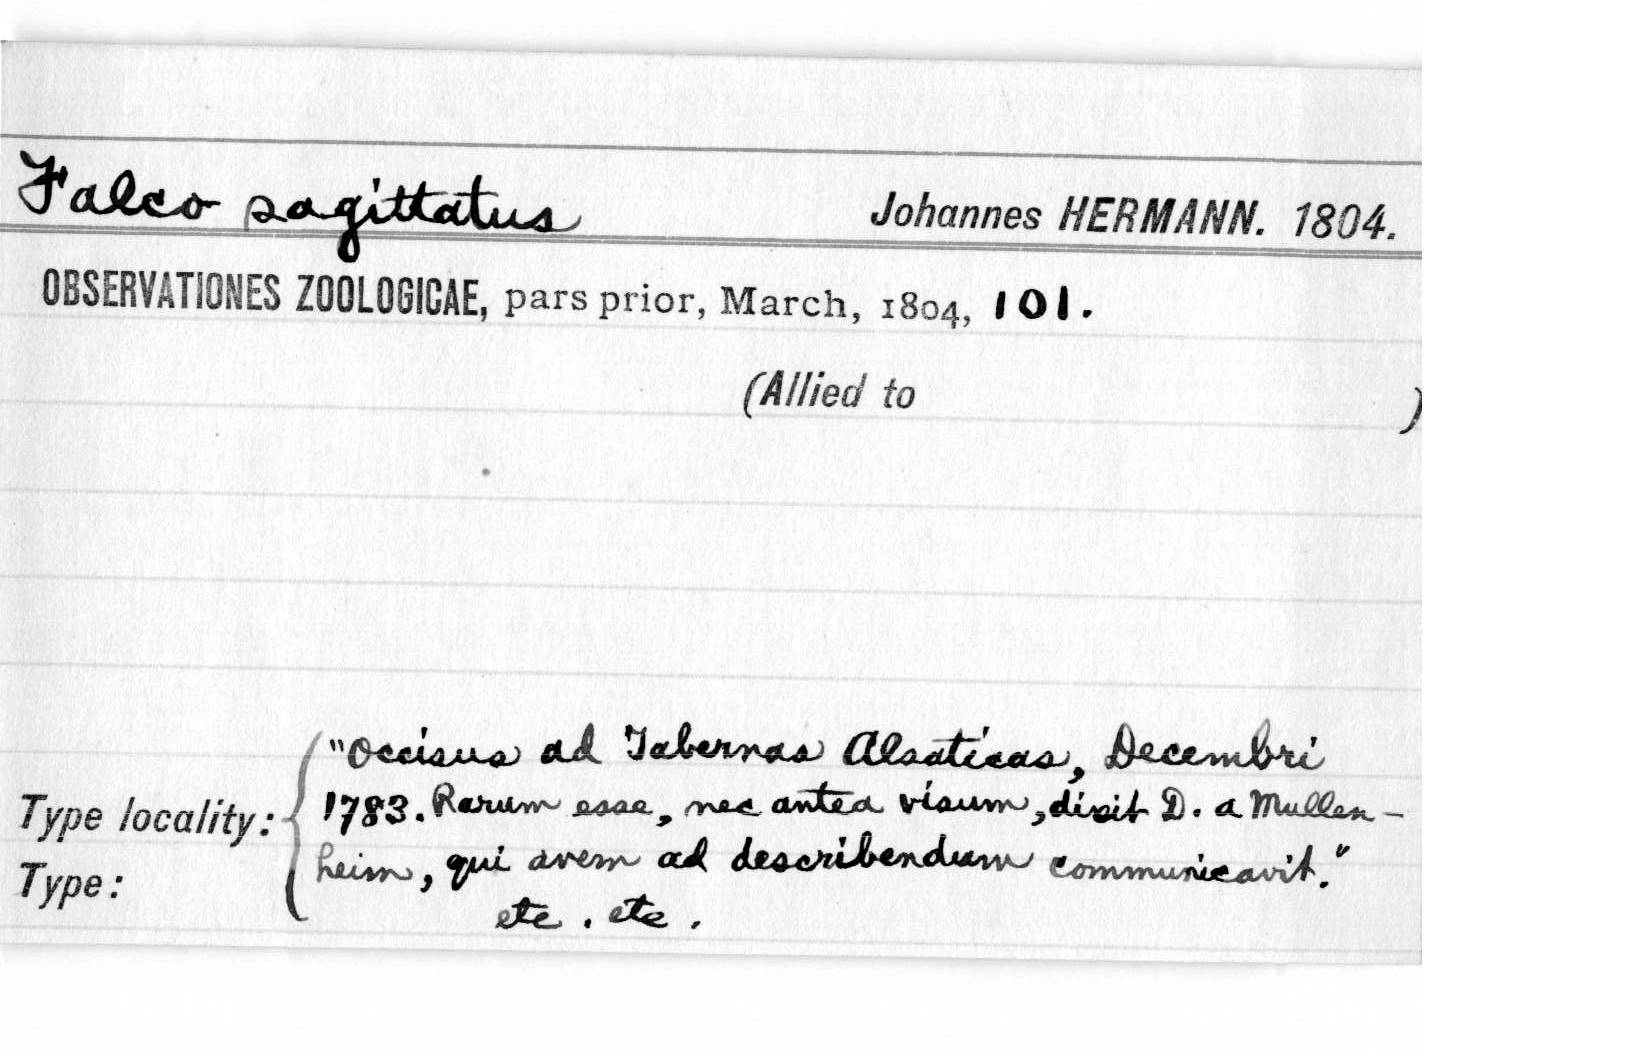 Falco sagittatus Johannes HERMANN. 1804.
OBSERVATIONES ZOOLOGICAE, pars prior, March, 1804, 101.
(Allied to )
"Occisus ad Tabernas Alsaticas, Decembri
Type locality: 1783. Rarum esse, nec antea visum, dixit D. a Mullen-
Type: heim, qui avem ad describendum communicavit."
etc. etc.